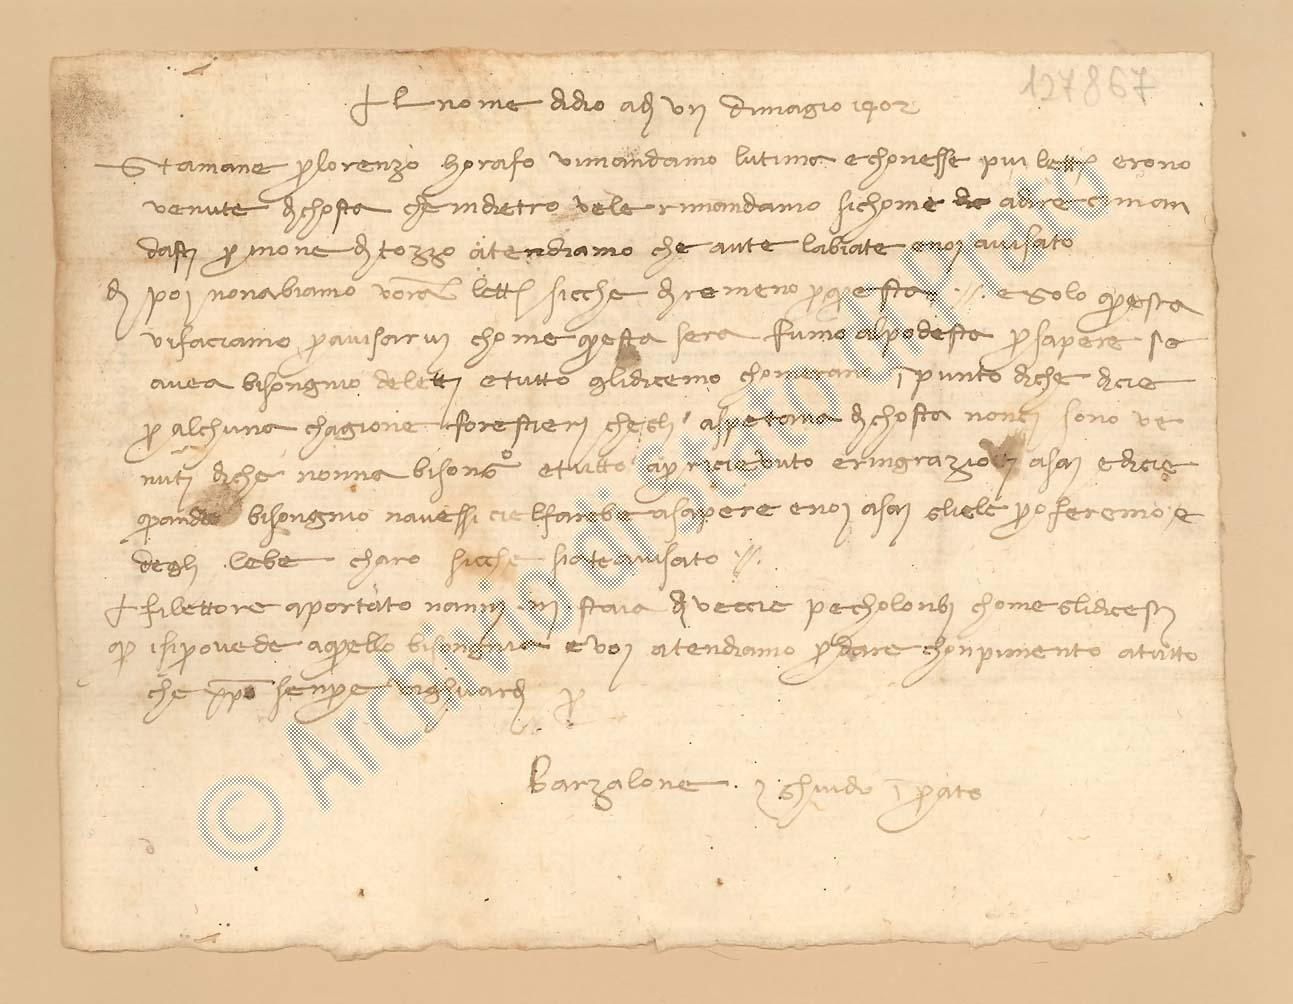 127867
† Al nome didio adi VII dimagio 1402
Stamane per lorenzo horafo vimandamo lutima e chonesse piu lettere erono
venute di chosta che indietro vele rimandamo sichome adire ci man
dasti per mone di tozzo atendiamo che aute labiate e noi avisato
di poi nonabiamo vostra lettera sicche diremeno per questa //. e solo questa
vifaciamo per avisarvi chome questa sera fumo alpodesta per sapere se
avea bisongnio deletti e tutto glidicemo chomerano i punto di che dicie
per alchuna chagione forestieri chegli aspetava di chosta nonci sono ve
nuti di che nonna bisongno e tutto a per ricievuto e ringraziovi asai e dicie
quando bisongnio navessi cielfarebe asapere e noi asai gliele proferemo e
degli lebe charo sicche siate avisato //.
† filettore aportato nanni staia di veccie pe cholonbi chome glidicesti
isiprovede aquello bisongnia e voi atendiamo per dare chonpimento atutto
che senpre vighuardi per
Barzalone di ghuido i prato
© Archivio di Stato di Prato